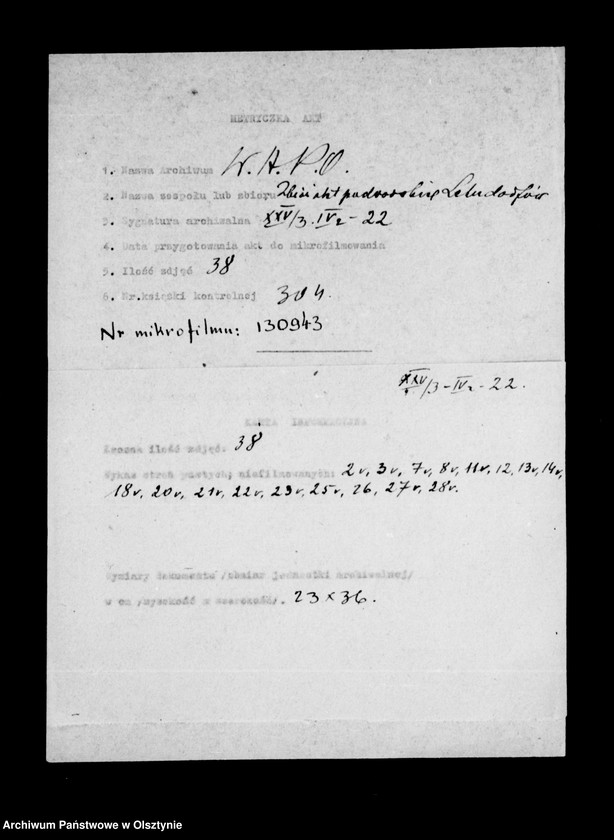 METRYCZKA AKT
1. Nazwa Archiwum W.A.P.O.
2. Nazwa zespołu lub zbioru Zbiór akt podworskich Lehndorfów
3. Sygnatura archiwalna XXV/3.IV2-22
4. Data przygotowania akt do mikrofilmowania
5. Ilość zdjęć 38
6. Nr.książki kontrolnej 304.
Nr mikrofilmu: 130943
XXV/3-IV2-22.
KARTA INFORMACYJNA
Łączna ilość zdjęć. 38
Wykaz stron pustych, niefilmowanych: 2v, 3v, 7v, 8v, 11v, 12, 13v, 14v,
18v, 20v, 21v, 22v, 23v, 25v, 26, 27v, 28v.
Wymiary dokumentu /rozmiar jednostki archiwalnej/
w cm /wysokość x szerokość/. 23 x 36.
Archiwum Państwowe w Olsztynie